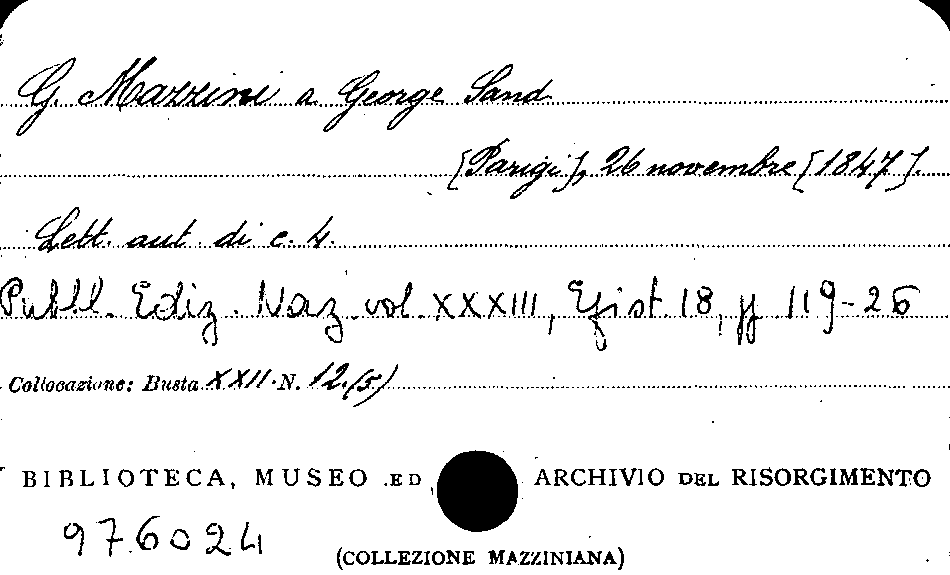 G. Mazzini a George Sand
[Parigi], 26 novembre [1847].
Lett. aut. di c. 4.
Pubbl. Ediz. Naz. vol. XXXIII, Epist. 18, pp 119-26
Collocazione: Busta XXII N. 12.(5)
BIBLIOTECA, MUSEO ED ARCHIVIO DEL RISORGIMENTO
976024
(COLLEZIONE MAZZINIANA)